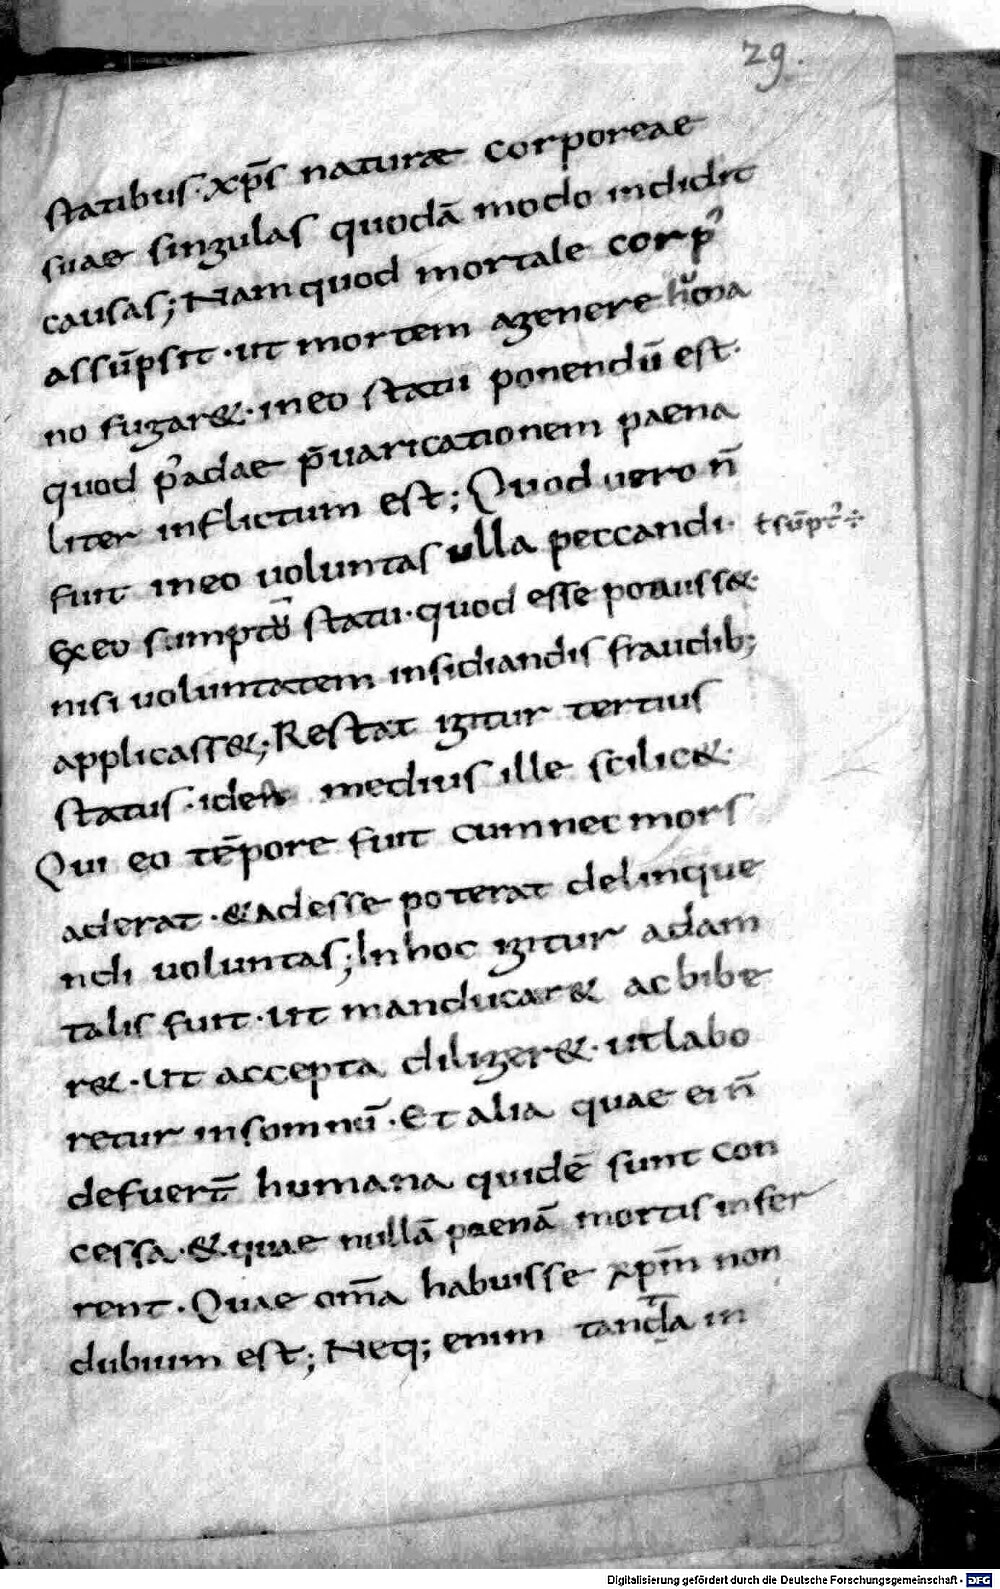 29.
statibus· xp̄s naturae corporeae
suae singulas quodā modo indidit
causas; Nam quod mortale corp̕
assūpsit· ut mortem agenere hūma
no fugar&· ineo statu ponendū est·
quod p̕adae p̄uaricationem paena
liter inflictum est; Quod uero n̄
fuit ineo uoluntas ulla peccandi·
Exeo sumptū statu· quod esse potuiss&·
nisi uoluntatem insidiandis fraudib;
applicass&; Restat igitur tertius
status· idē medius ille scilic&·
Qui eo tēpore fuit cum nec mors
aderat· &adesse poterat delinque
ndi uoluntas; In hoc igitur adam
talis fuit· ut manducar& ac bibe
r&· ut accepta diliger&· ut labo
retur insomnū· Et alia quae ei n̄
defuert̄ humana quidē sunt con
cessa· &quae nullā paenā mortis infer
rent· Quae om̄a habuisse xp̄m non
dubium est; Neq; enim in
Digitalisierung gefördert durch die Deutsche Forschungsgemeinschaft - DFG